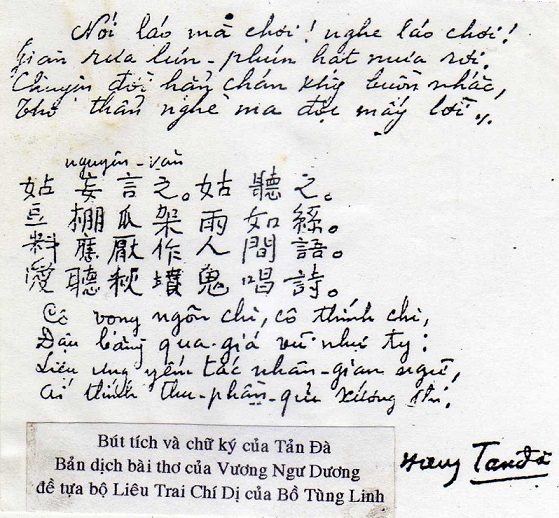 Nói láo mà chơi! nghe láo chơi!
Giàn rưa lún-phún hạt mưa rơi.
Chuyện đời hẳn chán khg buồn nhắc,
Thơ thẩn nghe ma đọc mấy lời
nguyên-văn
姑妄言之。姑聽之。
豆棚瓜架雨如絲。
料應厭作人間語。
愛聽秋墳鬼唱詩。
Cô vọng ngôn chi, cô thính chi,
Đậu bằng qua-giá vũ như ty;
Liệu ưng yếm tác nhân-gian ngữ,
Ái thính thu-phần-quỉ xướng thi.
Bút tích và chữ ký của Tản Đà
Bản dịch bài thơ của Vương Ngư Dương
đề tựa bộ Liêu Trai Chí Dị của Bồ Tùng Linh
Tảnđà